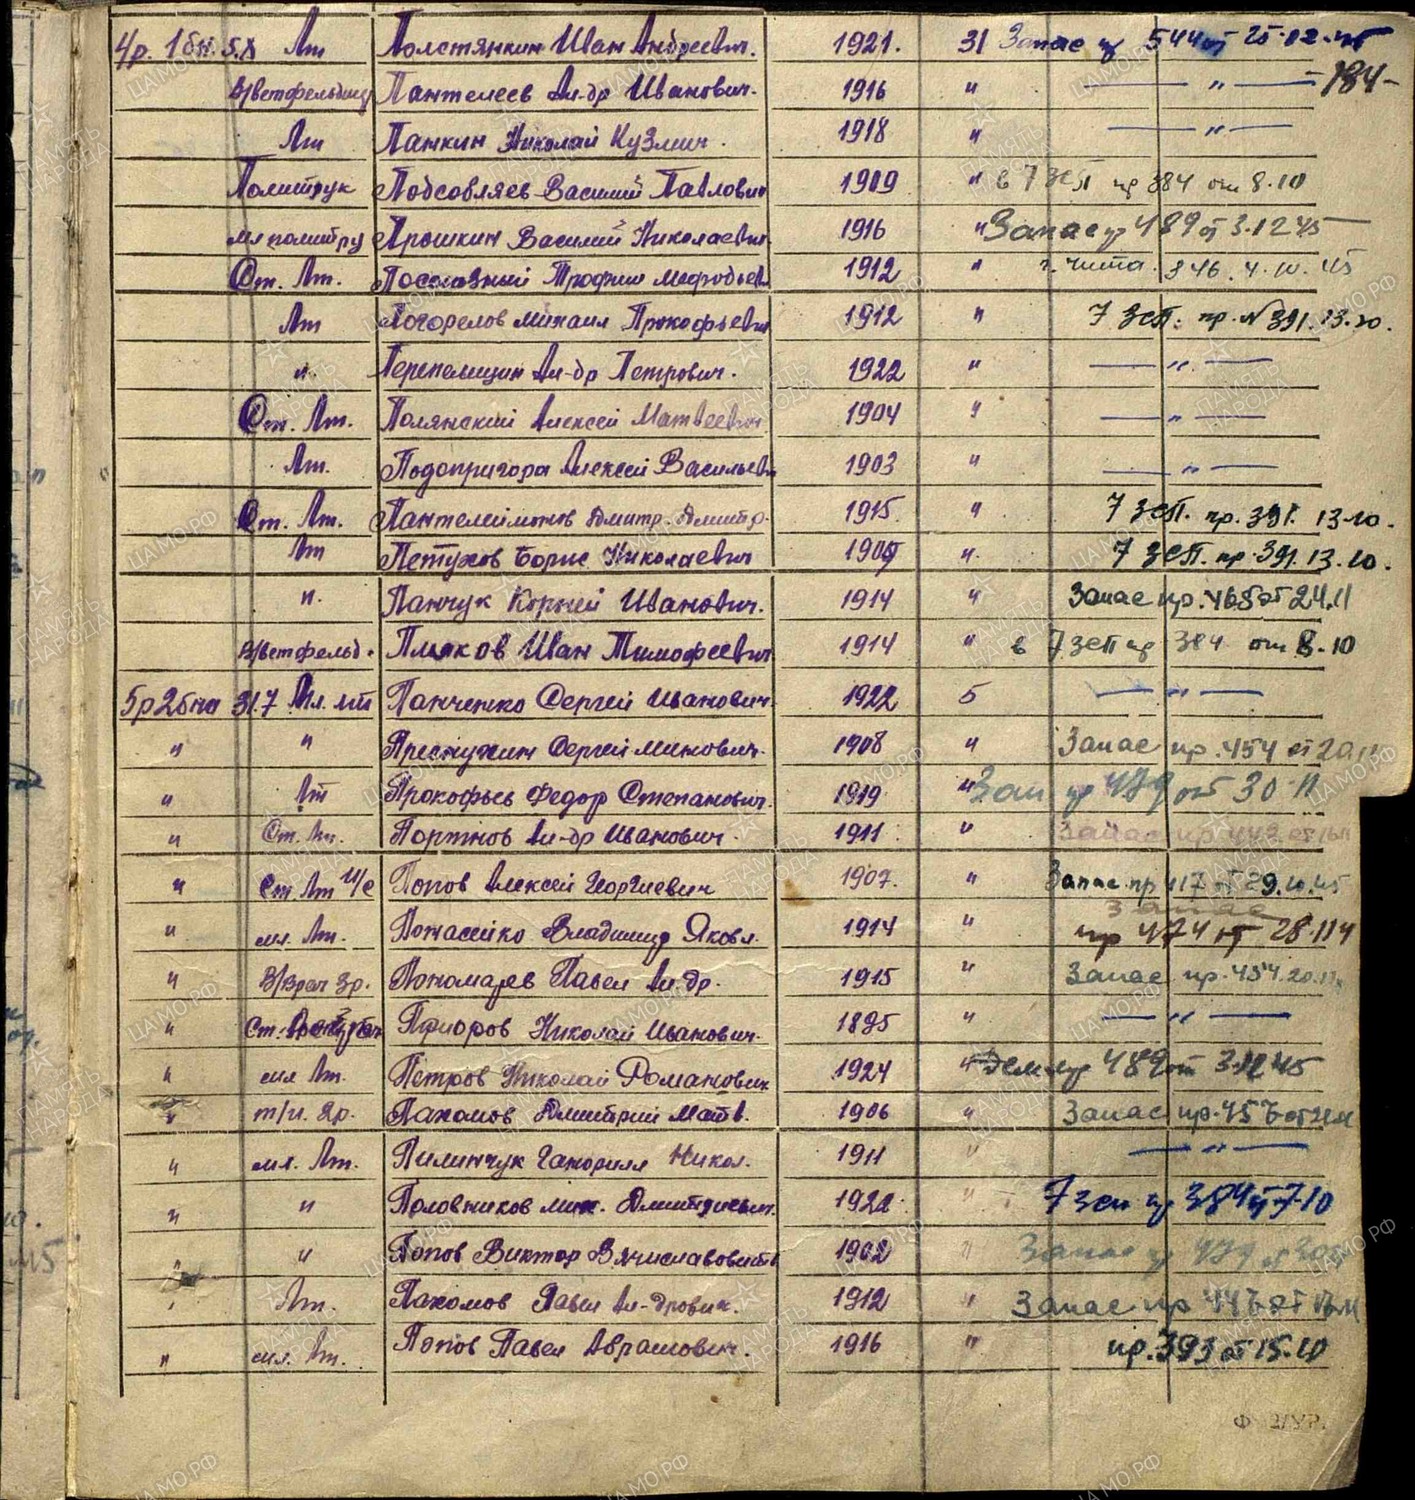 4р. 1бн. 5.8 Лт Толстянкин Иван Андреевич. 1921. 31 Запас пр 544 от 25.12.45
-184-
В/ветфельдшер Пантелеев Ал-др Иванович. 1916 " — " —
Лт Панкин Николай Кузмич. 1918 " — " —
Политрук Подсовляев Василий Павлович 1909 " в 7 зсп пр 384 от 8.10
мл политру Ярошкин Василий Николаевич 1916 " Запас пр 489 от 3.12 45
Ст. Лт. Трофим Мефодьев 1912 " г. Чита. 346. 4.10.45
Лт Погорелов Михаил Прокофьевич 1912 " 7 зсп. пр. № 391. 13.10.
" Перепелицин Ал-др Петрович. 1922 " — " —
Ст. Лт. Полянский Алексей Матвеевич 1904 " — " —
Лт. Подопригора Алексей Васильев 1903 " — " —
Ст. Лт. Пантелеймонов Дмитр. Дмитр. 1915 " 7 зсп. пр. 391. 13.10.
Лт Петухов Борис Николаевич " 7 зсп. пр. 391. 13.10.
". Панчук Корней Иванович. 1914 " Запас пр. 468 от 24.11
В/ветфельд. Иван Тимофеевич 1914 " в 7 зсп пр 384 от 8.10
5р 2бна 31.7 Мл. лт Панченко Сергей Иванович 1922 5 — " —
" " Преснухин Сергей Минович. 1908 " Запас пр. 454 от 20.11
" Лт Прокофьев Федор Степанович. 1919 " Зап пр 479 от 30.11
" Ст. Лт. Портнов Ал-др Иванович. 1911 " Запас пр 442 от
" Ст Лт И/с Попов Алексей Георгиевич 1907. " Запас пр 417 от 29.10.45
Запас
" мл. Лт. Понасенко Владимир Яковл. 1914 " пр 474 от 28.11
" В/врач 3р. Пономарев Павел Ал.др. 1915 " Запас пр. 454. 20.11
" Ст. Николай Иванович. 1895 " — " —
" мл Лт. Петров Николай Романович 1924 " Дем пр 489 от 3.12 45
" т/и. 2р. Пахомов Дмитрий Матв. 1906 " Запас пр.
" мл. Лт. Пилипчук Никол. 1911 " — " —
" " Половников Мих. Дмитриевич. 1922 " 7 зсп пр 384 от 7.10
" " Попов Виктор Вячиславович 1902 " Запас пр 479 от
" Лт. Пахомов Павел Ал-дрович. 1912 " Запас пр
" мл. Лт. Попов Павел Аврамович. 1916 " пр. 393 от 15.10
Ф 2/УР.
ЦАМО.РФ
ПАМЯТЬ НАРОДА